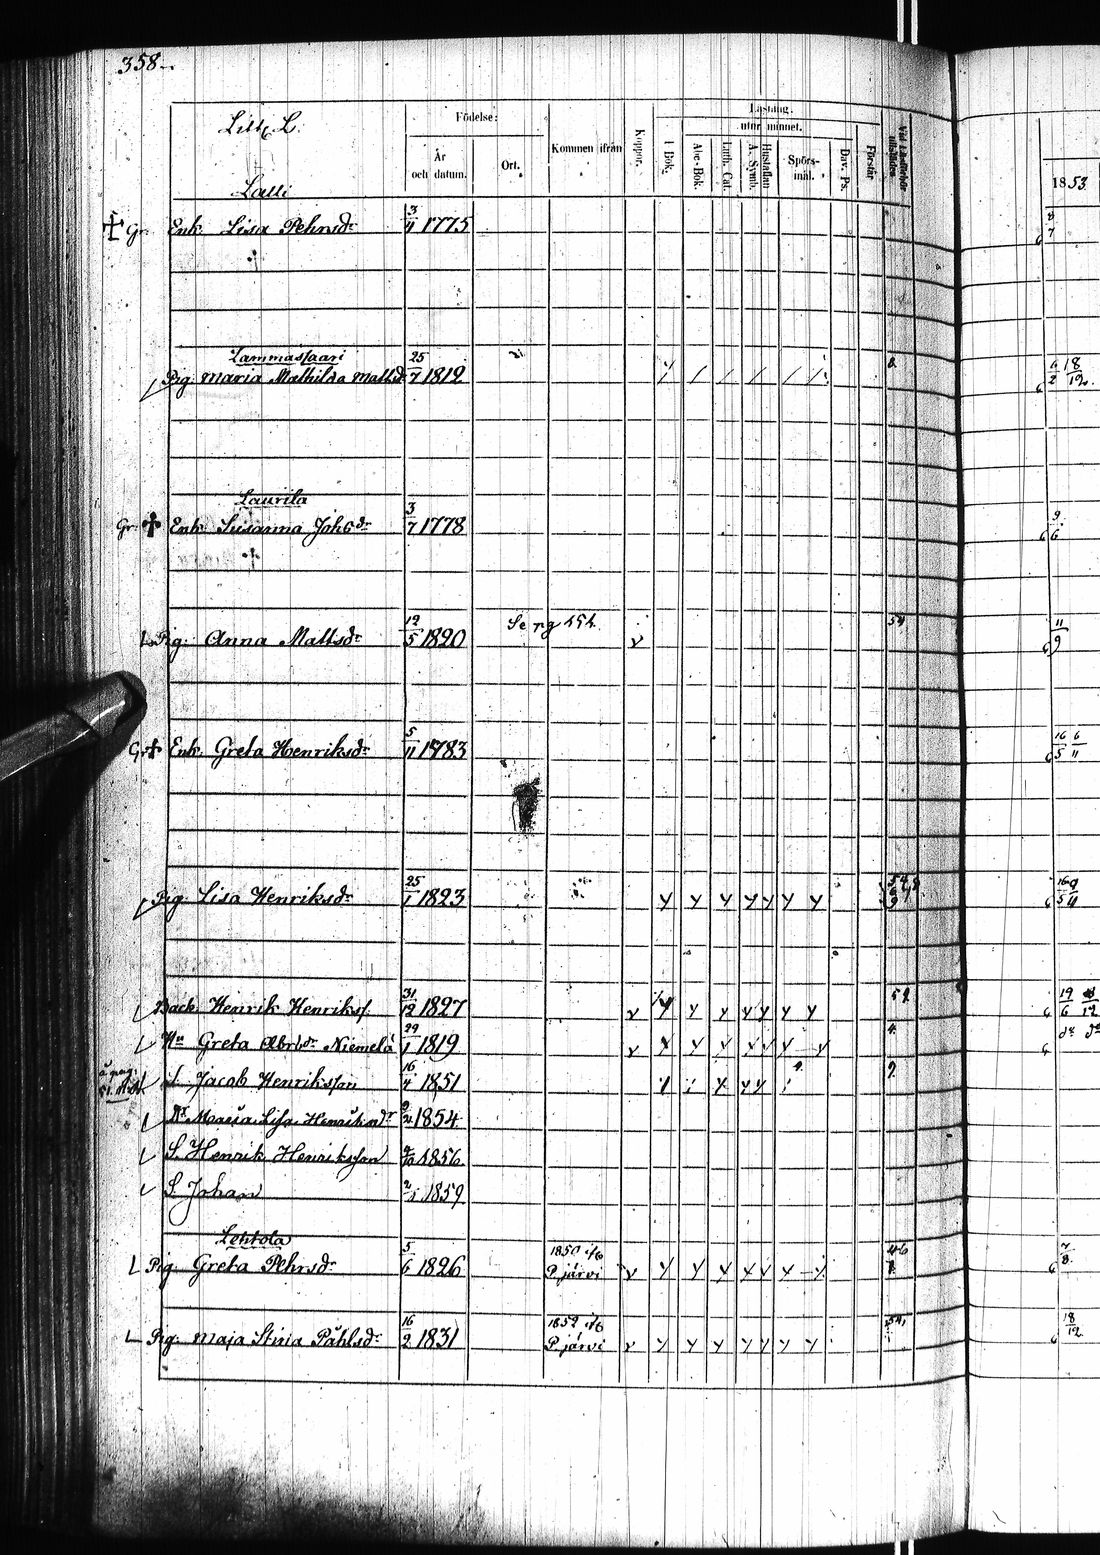 358.
Litt. L.
Födelse:
År och datum.
Ort.
Kommen ifrån
Koppor.
Läsning.
utur minnet.
I Bok.
Abc-Bok.
Luth. Cat.
Hustaflan A. Symb.
Spörsmål.
Dav. Ps.
Förstår
1853
Lalli
Gr. Enk. Lisa Pehrsdr 3/4 1775 8/7
Lammassaari
Pig. Maria Mathilda Mattsd 25/7 1812 6/2 18/12.
Laurila
Gr. Enk. Susanna Johsdr 3/7 1778 9/6
Pig. Anna Mattsdr 12/5 1820 54 11/9
Gr Enk. Greta Henriksdr 5/11 1783 16/5 6/11
Pig. Lisa Henriksdr 25/1 1823 16/5 9/4
Back. Henrik Henrikss. 31/12 1827 19/6
Hu Greta Abrsdr Niemelä 29/1 1819 dr dr
S. Jacob Henriksson 16/4 1851
Dr Maria Lisa Henriksdr 1854
S. Henrik Henriksson 1856
S. Johan 1859
Lehtola
Pig. Greta Pehrsdr 5/6 1826 1850 P.järvi 46 7/8
Pig. Maja Stina Påhlsdr 16/2 1831 1852 P.järvi 54 18/12